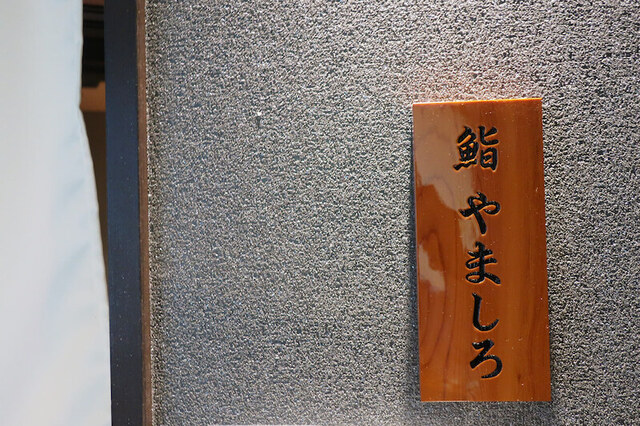 鮨 やましろ